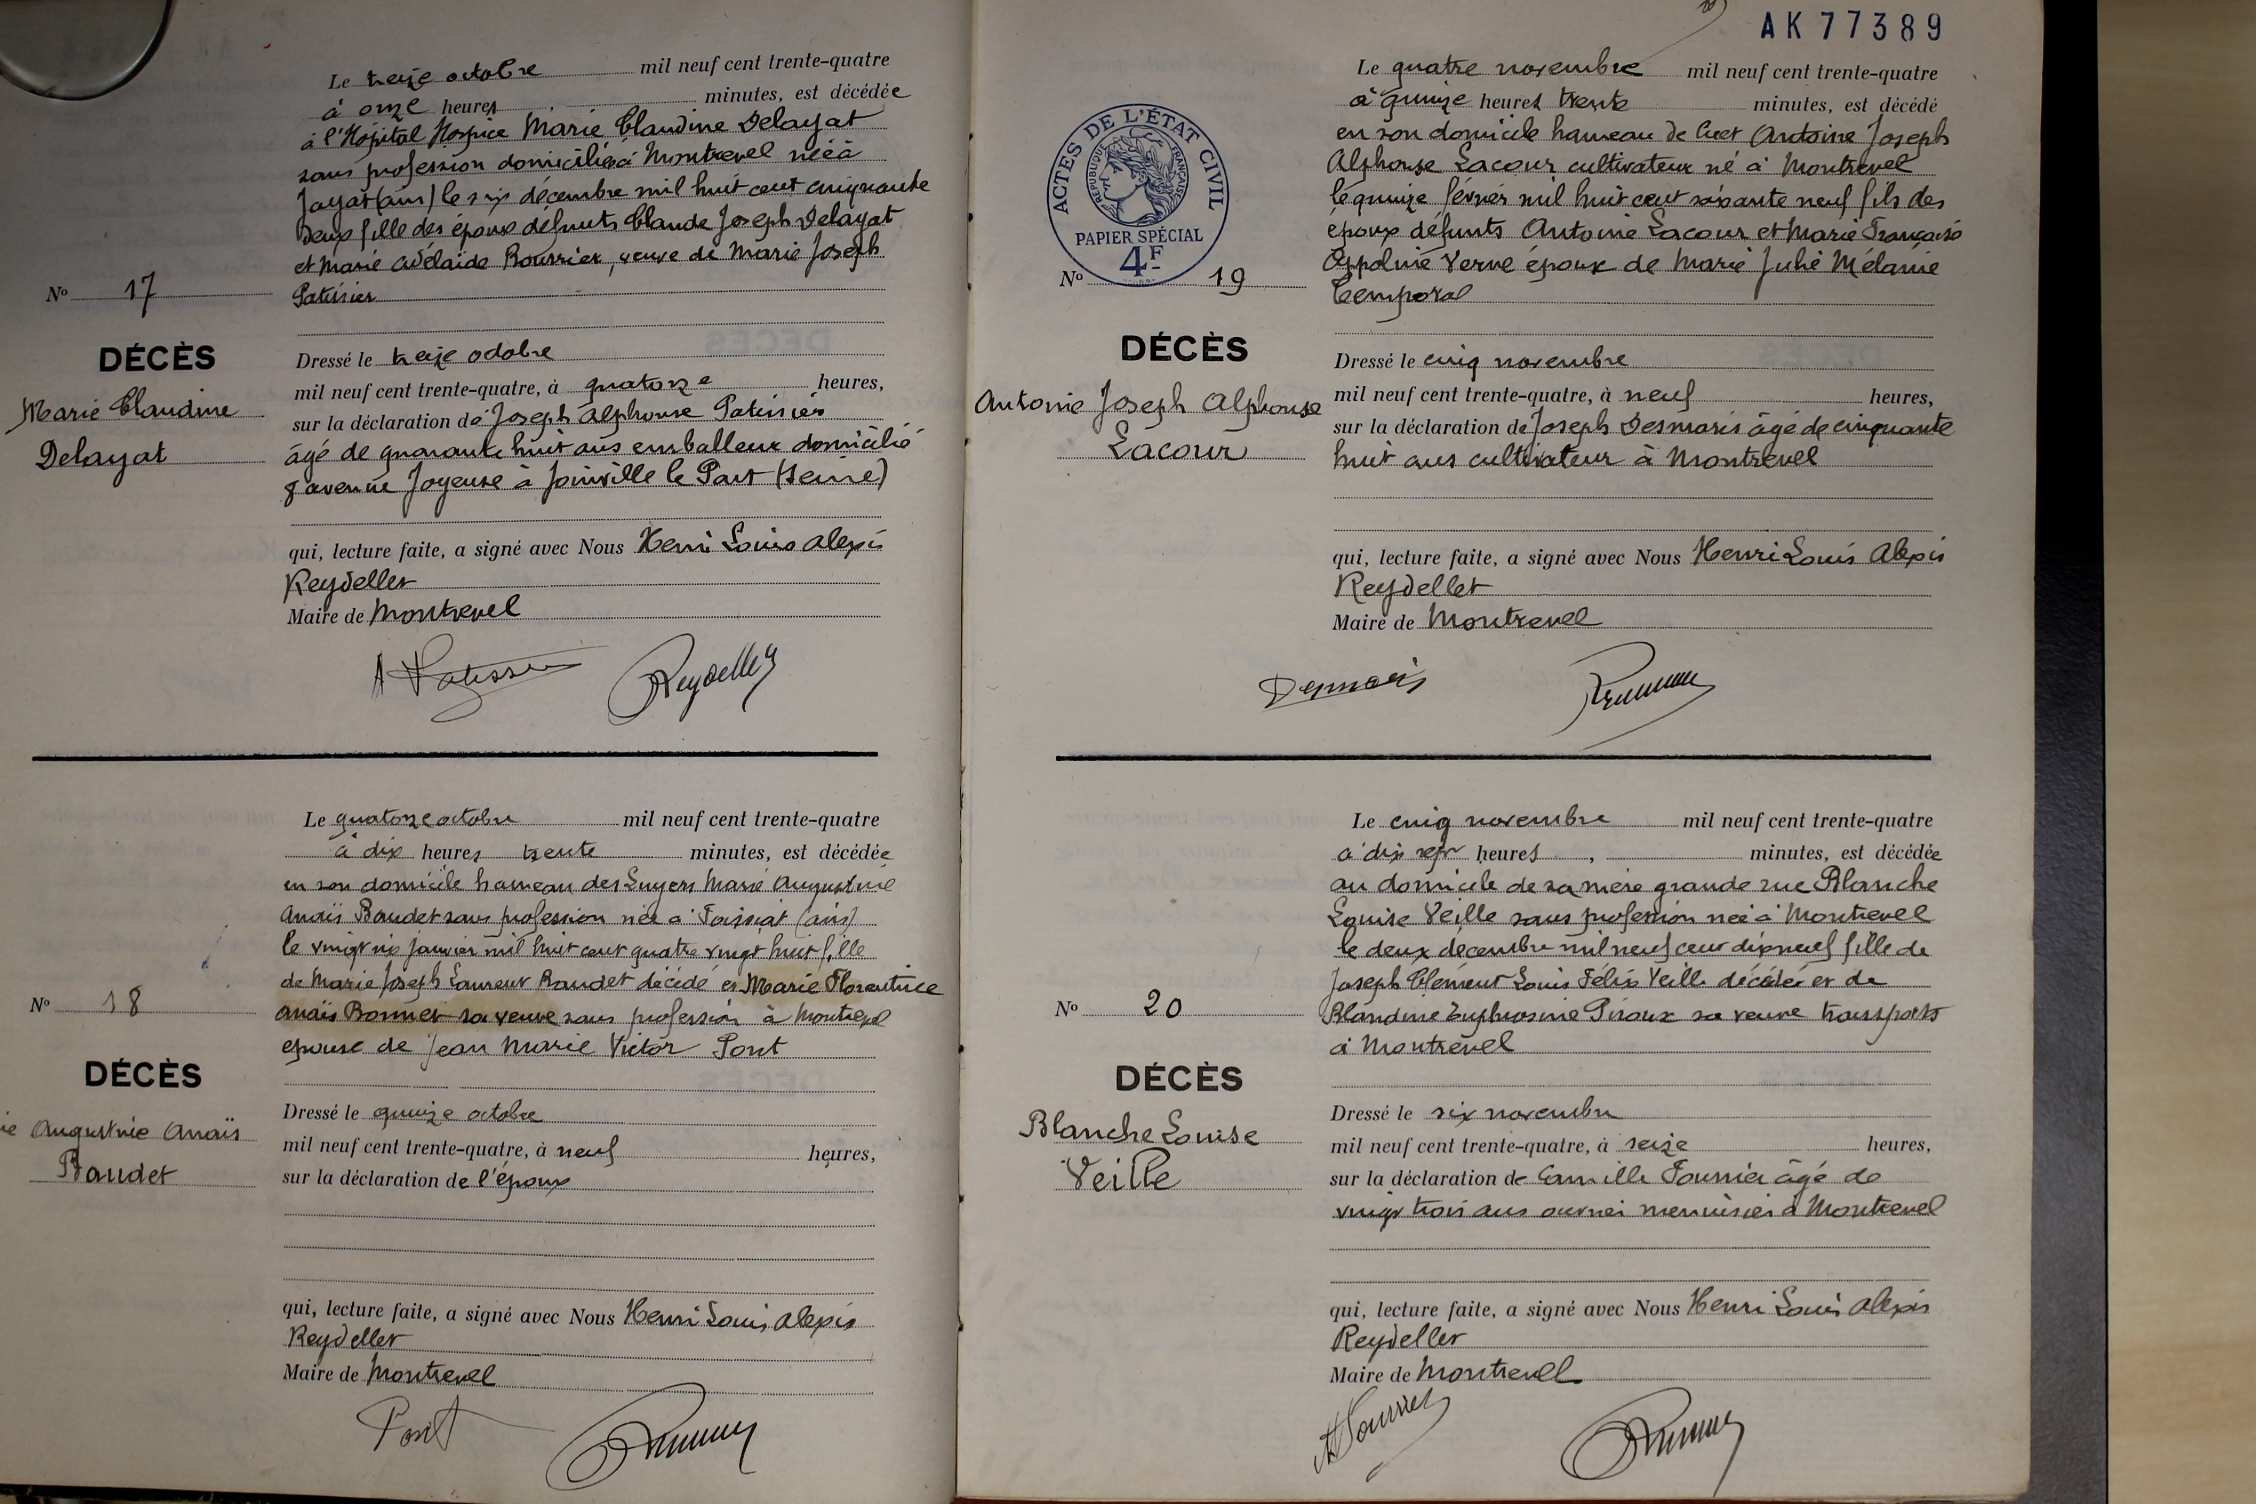 Le treize octobre mil neuf cent trente-quatre
à onze heures minutes, est décédée
à l'Hôpital Hospice Marie Claudine Delayat
sans profession domiciliée à Montrevel née à
Jayat (ain) le six décembre mil huit cent cinquante
deux fille des époux défunts Claude Joseph Delayat
et Marie Adélaïde Bourrier, veuve de Marie Joseph
Patissier
No 17
DÉCÈS
Marie Claudine
Delayat
Dressé le treize octobre
mil neuf cent trente-quatre, à quatorze heures,
sur la déclaration de Joseph Alphonse Patissier
âgé de quarante huit ans emballeur domicilié
8 avenue Joyeuse à Joinville le Pont (Seine)
qui, lecture faite, a signé avec Nous Henri Louis Alexis
Reydellet
Maire de Montrevel
A Patissier Reydellet
Le quatorze octobre mil neuf cent trente-quatre
à dix heures trente minutes, est décédée
en son domicile hameau des Luyers Marie Augustine
Anaïs Baudet sans profession née à Foissiat (ain)
le vingt six janvier mil huit cent quatre vingt huit fille
de Marie Joseph Laurent Baudet décédé et Marie Florentine
Anaïs Bonnet sa veuve sans profession à Montrevel
épouse de Jean Marie Victor Pont
No 18
DÉCÈS
ie Augustine Anaïs
Baudet
Dressé le quinze octobre
mil neuf cent trente-quatre, à neuf heures,
sur la déclaration de l'époux
qui, lecture faite, a signé avec Nous Henri Louis Alexis
Reydellet
Maire de Montrevel
Pont
AK 77389
Le quatre novembre mil neuf cent trente-quatre
à quinze heures trente minutes, est décédé
en son domicile hameau de Cuet Antoine Joseph
Alphonse Lacour cultivateur né à Montrevel
le quinze février mil huit cent soixante neuf fils des
époux défunts Antoine Lacour et Marie Françoise
Appolinie Verne époux de Marie Julie Mélanie
Temporal
ACTES DE L'ÉTAT CIVIL
RÉPUBLIQUE FRANÇAISE
PAPIER SPÉCIAL
4F
No 19
DÉCÈS
Antoine Joseph Alphonse
Lacour
Dressé le cinq novembre
mil neuf cent trente-quatre, à neuf heures,
sur la déclaration de Joseph Desmaris âgé de cinquante
huit ans cultivateur à Montrevel
qui, lecture faite, a signé avec Nous Henri Louis Alexis
Reydellet
Maire de Montrevel
Desmaris
Le cinq novembre mil neuf cent trente-quatre
à dix sept heures, minutes, est décédée
au domicile de sa mère grande rue Blanche
Louise Veille sans profession née à Montrevel
le deux décembre mil neuf cent dix neuf fille de
Joseph Clément Louis Félix Veille décédé et de
Blandine Euphrosine Piroux sa veuve transports
à Montrevel
No 20
DÉCÈS
Blanche Louise
Veille
Dressé le six novembre
mil neuf cent trente-quatre, à seize heures,
sur la déclaration de Camille Fournier âgé de
vingt trois ans ouvrier menuisier à Montrevel
qui, lecture faite, a signé avec Nous Henri Louis Alexis
Reydellet
Maire de Montrevel
Fournier